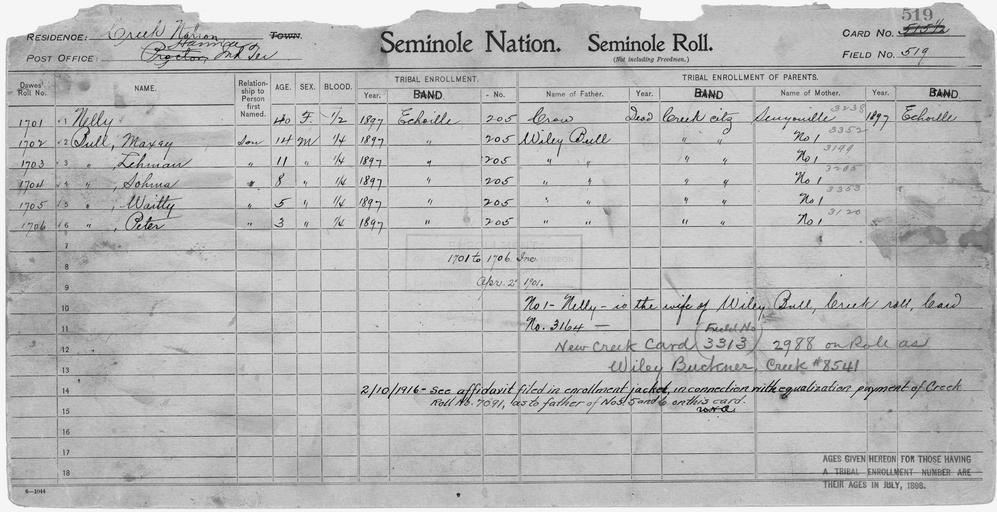 519
RESIDENCE: Creek Nation TOWN. CARD NO. 515½
Hanna
POST OFFICE: Proctor, Ind Ter. FIELD NO. 519
Seminole Nation. Seminole Roll.
(Not including Freedmen.)
TRIBAL ENROLLMENT. TRIBAL ENROLLMENT OF PARENTS.
Dawes' Roll No. NAME. Relationship to Person first Named. AGE. SEX. BLOOD. Year. BAND - No. Name of Father. Year. BAND Name of Mother. Year. BAND
1701 1 Nelly 40 F. 1/2 1897 Echoille 205 Crow Dead Creek citz 3238 1897 Echoille
1702 2 Bull, Maxey Son 14 M 1/4 1897 " 205 Wiley Bull " " No 1 3352
1703 3 " , Lehman " 11 " 1/4 1897 " 205 " " " " No 1 3199
1704 4 " , Sohma " 8 " 1/4 1897 " 205 " " " " No 1
1705 5 " , Waitty " 5 " 1/4 1897 " 205 " " " " No 1 3353
1706 6 " , Peter " 3 " 1/4 1897 " 205 " " " " No 1 3120
7
8 1701 to 1706 Inc.
9 Apr. 2, 1901.
10 No 1 - Nelly - is the wife of Wiley Bull, Creek roll, Card
11 No. 3164 —
12 New Creek Card (Field No 3313) 2988 on Role as
13 Wiley Buckner, Creek #8541
14 2/10/1916 - See affidavit filed in enrollment jacket, in connection with equalization payment of Creek
15 Roll No. 7091, as to father of Nos. 5 and 6 on this card.
16
17
18
AGES GIVEN HEREON FOR THOSE HAVING
A TRIBAL ENROLLMENT NUMBER ARE
THEIR AGES IN JULY, 1898.
6—1044